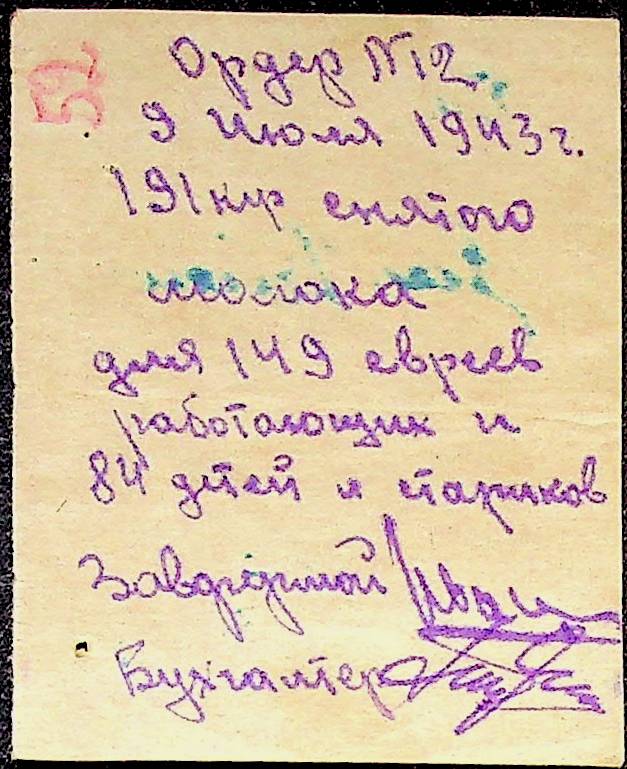 52
Ордер N12
9 июля 1943 г.
191 кгр снятого
молока
для 149 евреев
работающих и
84 дтей и стариков
Завфермой
Бухгалтер